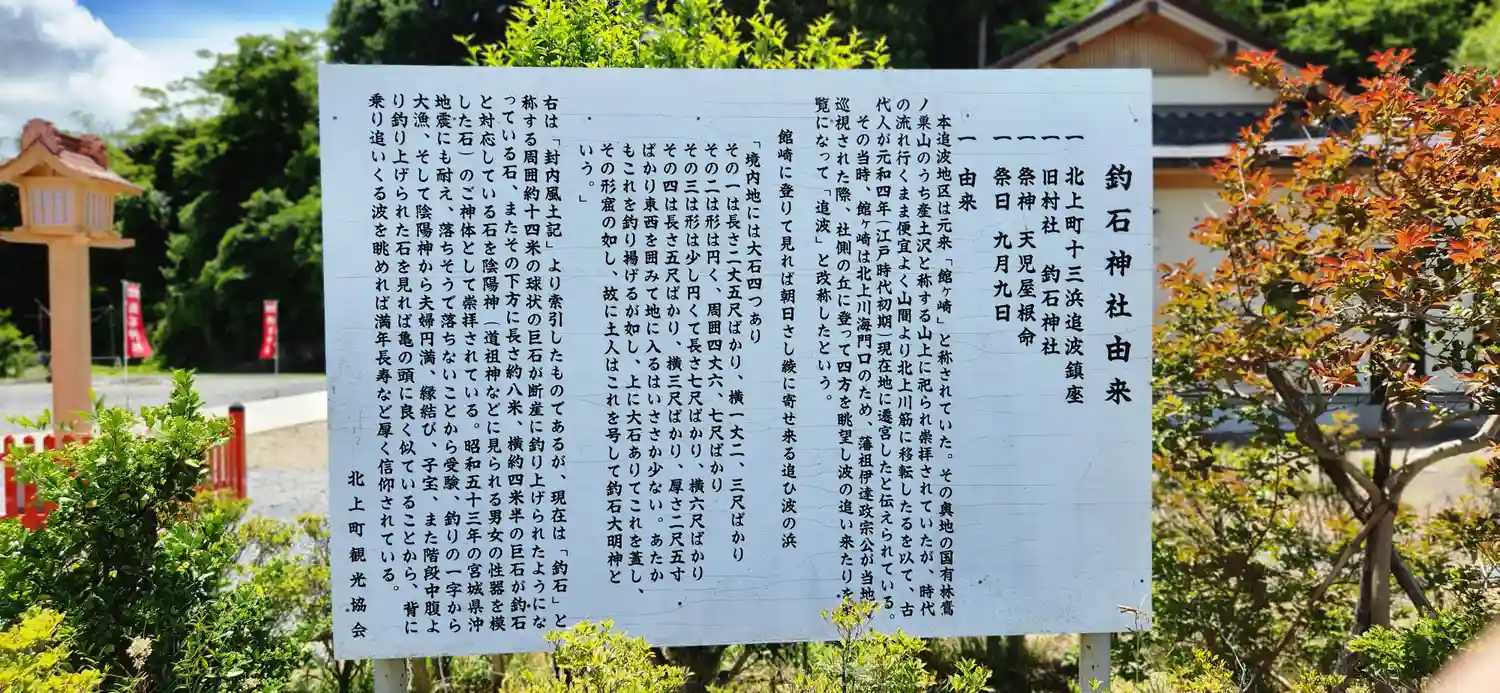 釣石神社由来
一 北上町十三浜追波鎮座
一 旧村社 釣石神社
一 祭神 天児屋根命
一 祭日 九月九日
一 由来
本追波地区は元来「館ヶ崎」と称されていた。その奥地の国有林鴬
ノ巣山のうち産土沢と称する山上に祀られ崇拝されていたが、時代
の流れ行くまま便宜よく山間より北上川筋に移転したるを以て、古
代人が元和四年(江戸時代初期)現在地に遷宮したと伝えられている。
その当時、館ヶ崎は北上川海門口のため、藩祖伊達政宗公が当地
巡視された際、社側の丘に登って四方を眺望し波の追い来たりを
覧になって「追波」と改称したという。
館崎に登りて見れば朝日さし綾に寄せ来る追ひ波の浜
「境内地には大石四つあり
その一は長さ二丈五尺ばかり、横一丈二、三尺ばかり
その二は形は円く、周囲四丈六、七尺ばかり
その三は形は少し円くて長さ七尺ばかり、横六尺ばかり
その四は長さ五尺ばかり、横三尺ばかり、厚さ二尺五寸
ばかり東西を囲みて地に入るはいささか少ない。あたか
もこれを釣り揚げるが如し、上に大石ありてこれを蓋し、
その形窟の如し、故に土人はこれを号して釣石大明神と
いう。」
右は「封内風土記」より索引したものであるが、現在は「釣石」と
称する周囲約十四米の球状の巨石が断産に釣り上げられたようにな
っている石、またその下方に長さ約八米、横約四米半の巨石が釣石
と対応している石を陰陽神(道祖神などに見られる男女の性器を模
した石)のご神体として崇拝されている。昭和五十三年の宮城県沖
地震にも耐え、落ちそうで落ちないことから受験、釣りの一字から
大漁、そして陰陽神から夫婦円満、縁結び、子宝、また階段中腹よ
り釣り上げられた石を見れば亀の頭に良く似ていることから、背に
乗り追いくる波を眺めれば満年長寿など厚く信仰されている。
北上町観光協会